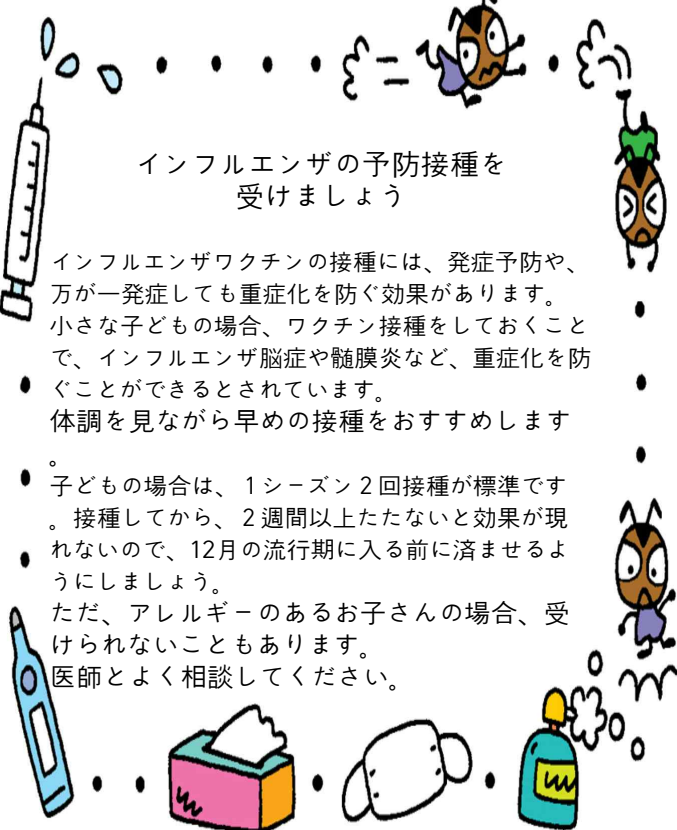 インフルエンザの予防接種を
受けましょう
インフルエンザワクチンの接種には、発症予防や、
万が一発症しても重症化を防ぐ効果があります。
小さな子どもの場合、ワクチン接種をしておくこと
で、インフルエンザ脳症や髄膜炎など、重症化を防
ぐことができるとされています。
体調を見ながら早めの接種をおすすめします
。
子どもの場合は、1シーズン2回接種が標準です
。接種してから、2週間以上たたないと効果が現
れないので、12月の流行期に入る前に済ませるよ
うにしましょう。
ただ、アレルギーのあるお子さんの場合、受
けられないこともあります。
医師とよく相談してください。